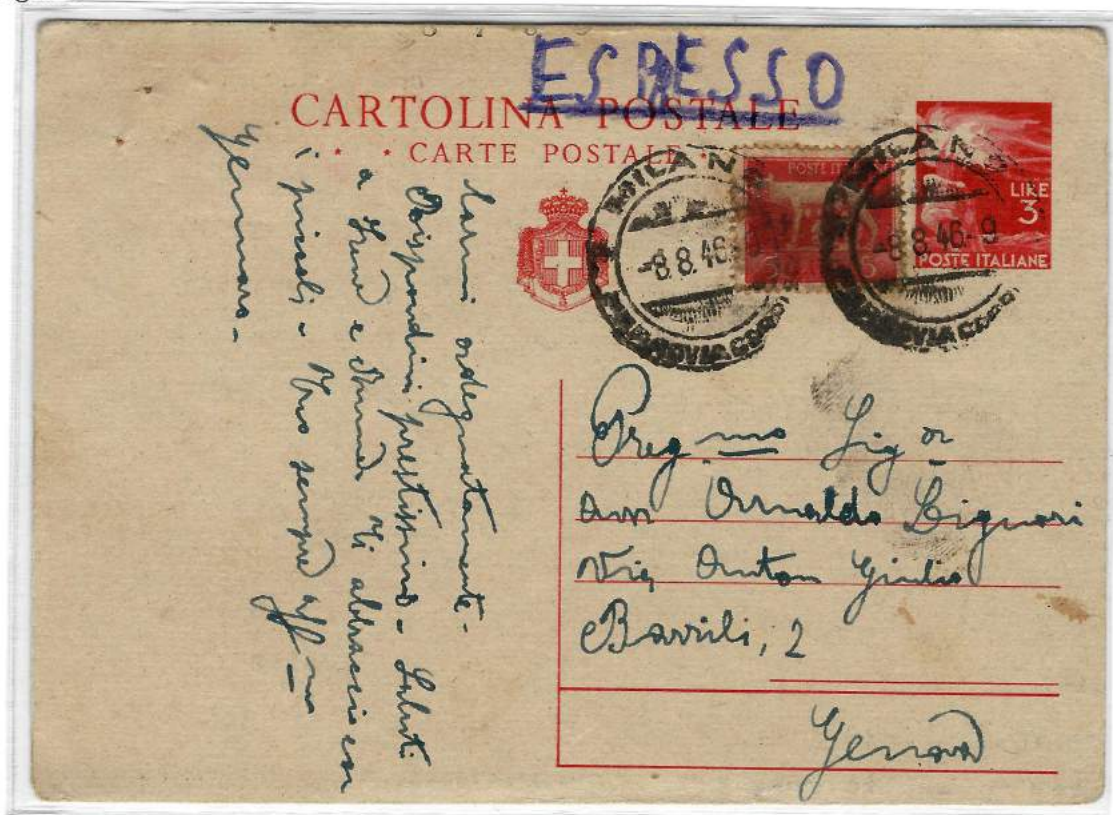 ESPRESSO
CARTOLINA POSTALE
* * CARTE POSTALE *
POSTE IT
5 5
MILANO
-8.8.46.
FERROVIA CORR
MILANO
-8.8.46.-9
FERROVIA CORR
LIRE
3
POSTE ITALIANE
Preg.mo Sig.or
Arnaldo
Via Anton Giulio
Barrili, 2
Genova
larmi adeguatamente -
Rispondimi prestissimo - Saluti
a e Ti abbraccio con
i piccoli - tuo sempre aff.mo
Gennaro -